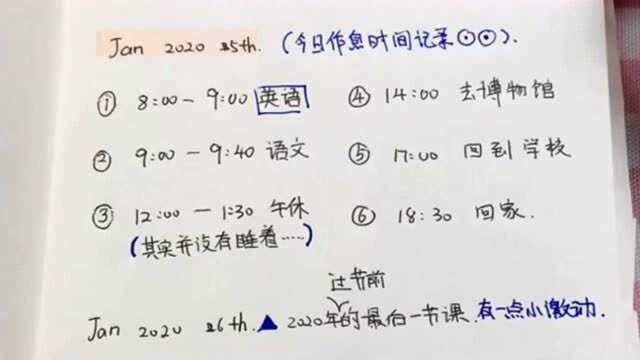 Jan 2020 25th. (今日作息时间记录⊙⊙).
① 8:00 — 9:00 英语
② 9:00 — 9:40 语文
③ 12:00 — 1:30 午休
(其实并没有睡着.....)
④ 14:00 去博物馆
⑤ 17:00 回到学校
⑥ 18:30 回家.
过节前
Jan 2020 26th. ▲ 2020年的最后一节课. 有一点小激动.